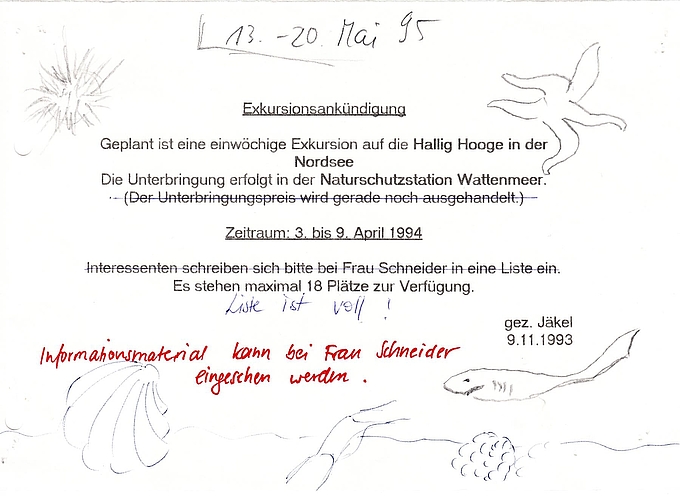 13. - 20. Mai 95
Exkursionsankündigung
Geplant ist eine einwöchige Exkursion auf die Hallig Hooge in der
Nordsee
Die Unterbringung erfolgt in der Naturschutzstation Wattenmeer.
(Der Unterbringungspreis wird gerade noch ausgehandelt.)
Zeitraum: 3. bis 9. April 1994
Interessenten schreiben sich bitte bei Frau Schneider in eine Liste ein.
Es stehen maximal 18 Plätze zur Verfügung.
Liste ist voll !
gez. Jäkel
9.11.1993
Informationsmaterial kann bei Frau Schneider
eingesehen werden.